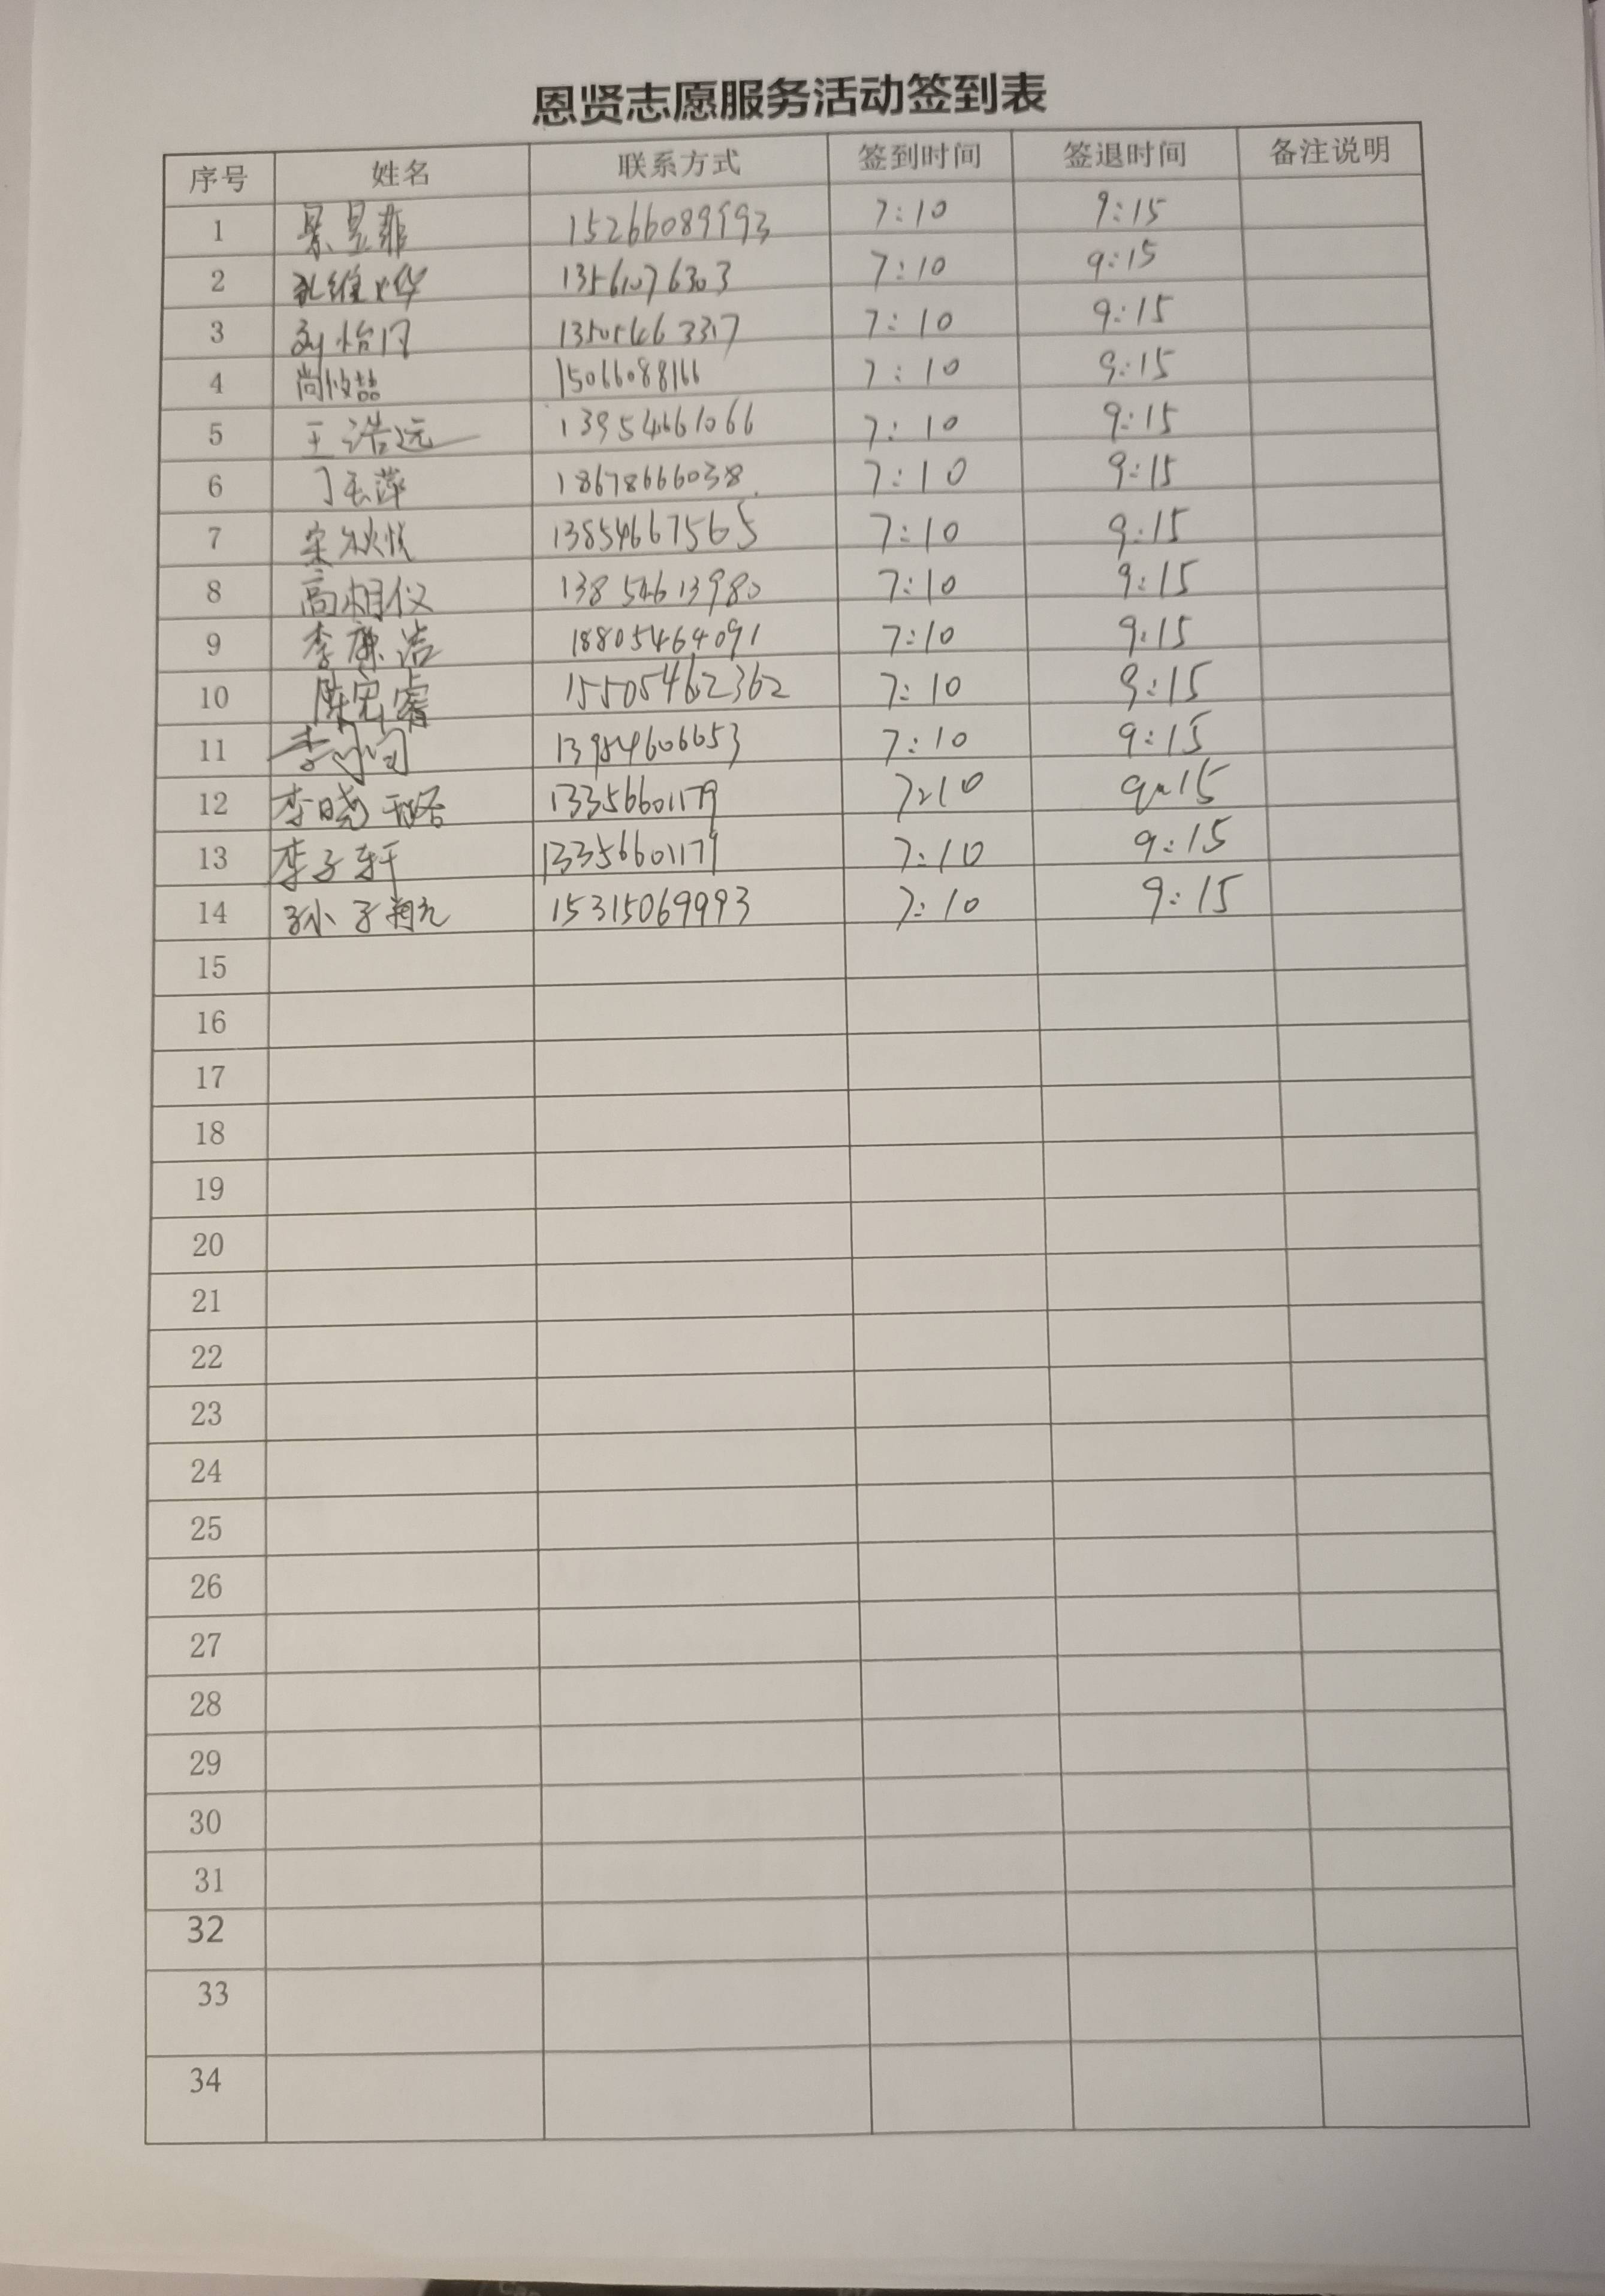 恩贤志愿服务活动签到表
序号 姓名 联系方式 签到时间 签退时间 备注说明
1 景昱菲 15266089993 7:10 9:15
2 孔维烨 13561076303 7:10 9:15
3 刘怡门 13505463317 7:10 9:15
4 尚悦喆 15066088166 7:10 9:15
5 王浩远 13954661066 7:10 9:15
6 丁玉萍 18678666038 7:10 9:15
7 宋秋悦 13854667565 7:10 9:15
8 高相仪 13854613980 7:10 9:15
9 李康浩 18805464091 7:10 9:15
10 陈宪睿 15505462362 7:10 9:15
11 李 13954606653 7:10 9:15
12 李晓璐 13356601179 7:10 9:15
13 李子轩 13356601179 7:10 9:15
14 孙子翔 15315069993 7:10 9:15
15
16
17
18
19
20
21
22
23
24
25
26
27
28
29
30
31
32
33
34